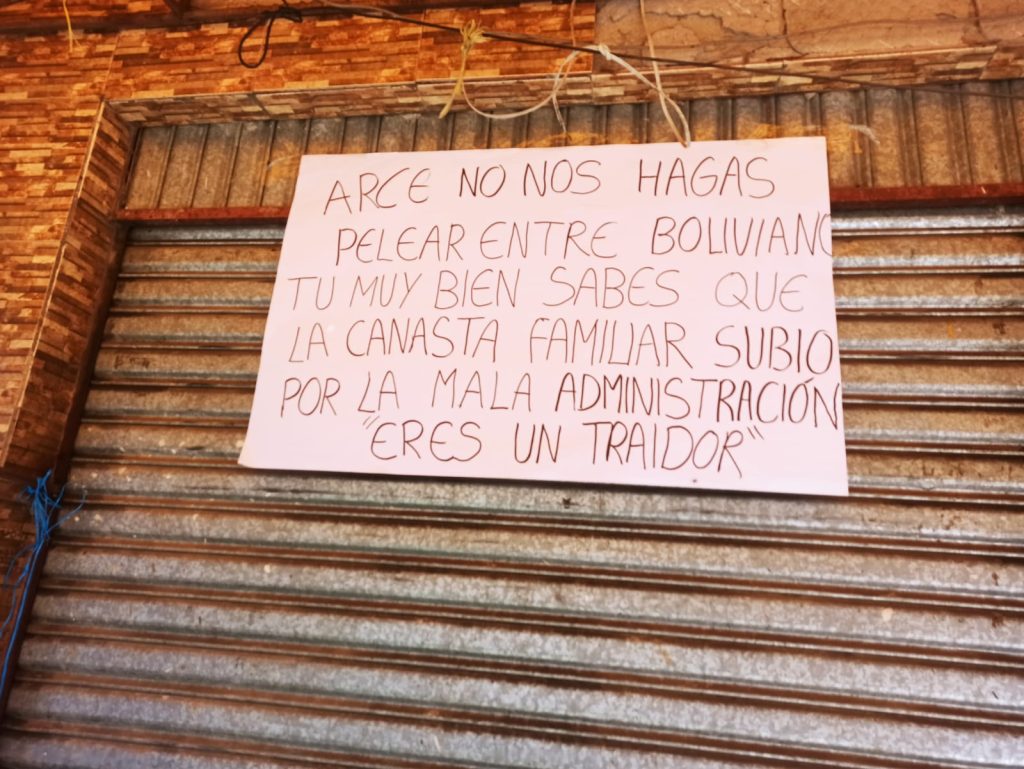 ARCE NO NOS HAGAS
PELEAR ENTRE BOLIVIANO
TU MUY BIEN SABES QUE
LA CANASTA FAMILIAR SUBIO
POR LA MALA ADMINISTRACIÓN
"ERES UN TRAIDOR"